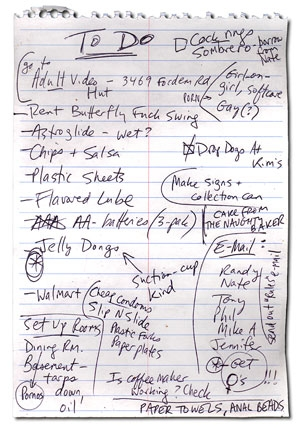 To Do
□ Cock rings
Sombrero - borrow from Nate
go to
Adult Video - 3469 Fordem Rd
Hut
PORN
Girl-on-girl, softcore
Gay (?)
- Rent Butterfly Fuck Swing
- Astroglide - wet?
- Chips + Salsa
☒ Drop Dogs At Kim's
- Plastic Sheets
Make signs + collection can
- Flavored Lube
- AA-batteries (3-pak)
CAKE FROM THE NAUGHTY BAKER
- Jelly Dongs
suction-cup kind
E-Mail:
Randy
Nate
Tony
Phil
Mike A
Jennifer
send out "Rules" e-mail
GET ♀'s !!!
- Walmart
Cheap Condoms
Slip N Slide
Plastic Forks
Paper plates
Set Up Rooms
Dining Rm.
Basement -
tarps
down,
oil
Pornos
Is coffee maker
working? Check
PAPER TOWELS, ANAL BEADS